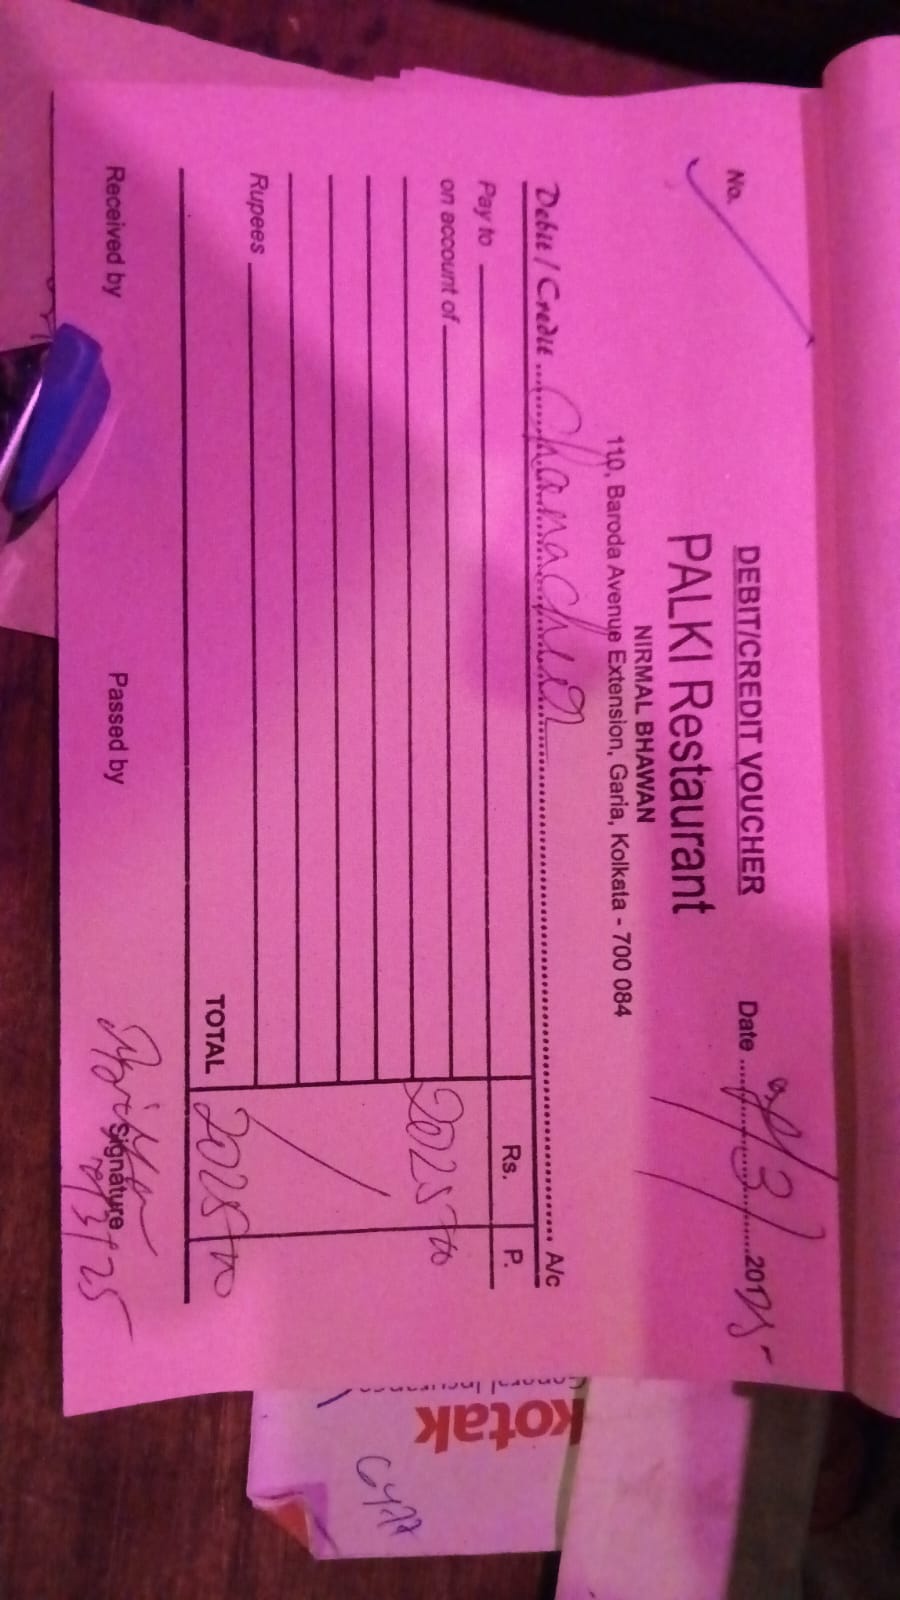 No.
DEBIT/CREDIT VOUCHER
Date 3/ 2025
PALKI Restaurant
NIRMAL BHAWAN
110, Baroda Avenue Extension, Garia, Kolkata - 700 084
Debit / Credit A/c
Pay to Rs. P.
on account of
2025 00
Rupees
TOTAL 2025 00
Received by Passed by Signature
3/25
kotak
General Insurance